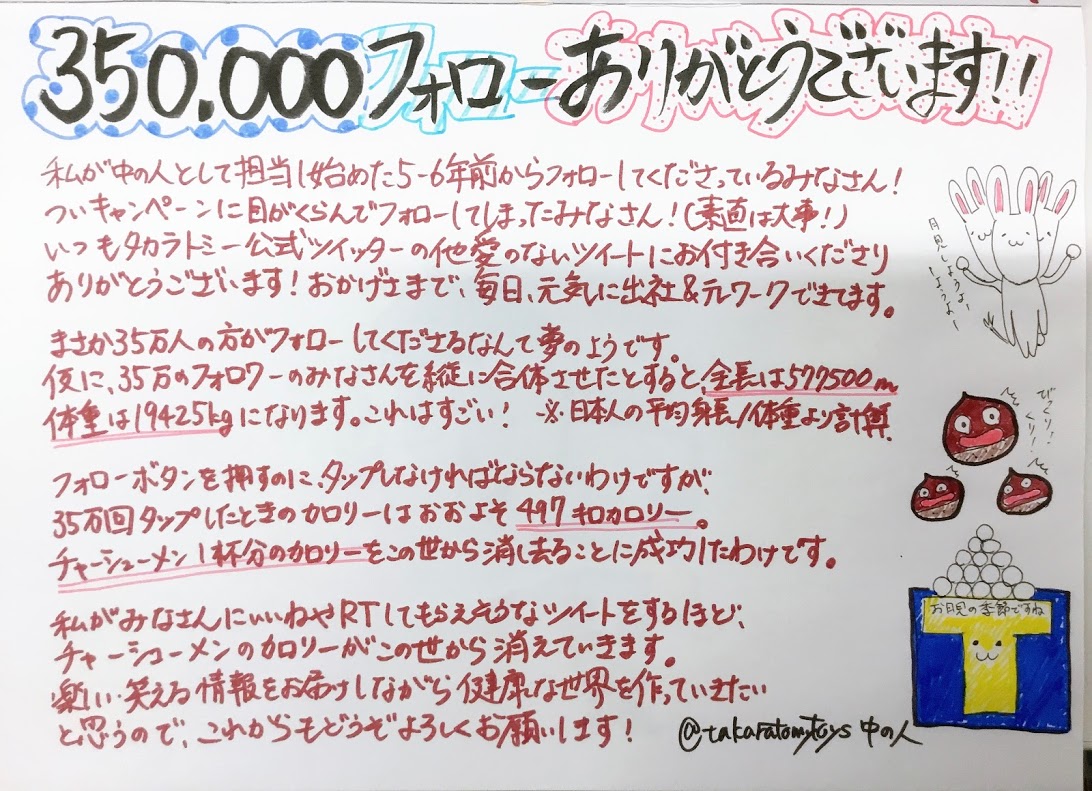 350.000フォローありがとうございます!!
私が中の人として担当し始めた5-6年前からフォローしてくださっているみなさん!
ついキャンペーンに目がくらんでフォローしてしまったみなさん!(素直は大事!)
いつもタカラトミー公式ツイッターの他愛のないツイートにお付き合いくださり
ありがとうございます!おかげさまで、毎日、元気に出社&テレワークできてます。
まさか35万人の方がフォローしてくださるなんて夢のようです。
仮に、35万のフォロワーのみなさんを縦に合体させたとすると、全長は577500m
体重は19425kgになります。これはすごい! ※日本人の平均身長/体重より計算
フォローボタンを押すのに、タップしなければならないわけですが、
35万回タップしたときのカロリーはおおよそ497キロカロリー。
チャーシューメン1杯分のカロリーをこの世から消し去ることに成功したわけです。
私がみなさんにいいねやRTしてもらえそうなツイートをするほど、
チャーシューメンのカロリーがこの世から消えていきます。
楽しい・笑える情報をお届けしながら健康な世界を作っていきたい
と思うので、これからもどうぞよろしくお願いします!
@takaratomytoys 中の人
月見しようよ、
しようよー
びっくり!
くり!
お月見の季節ですね
T